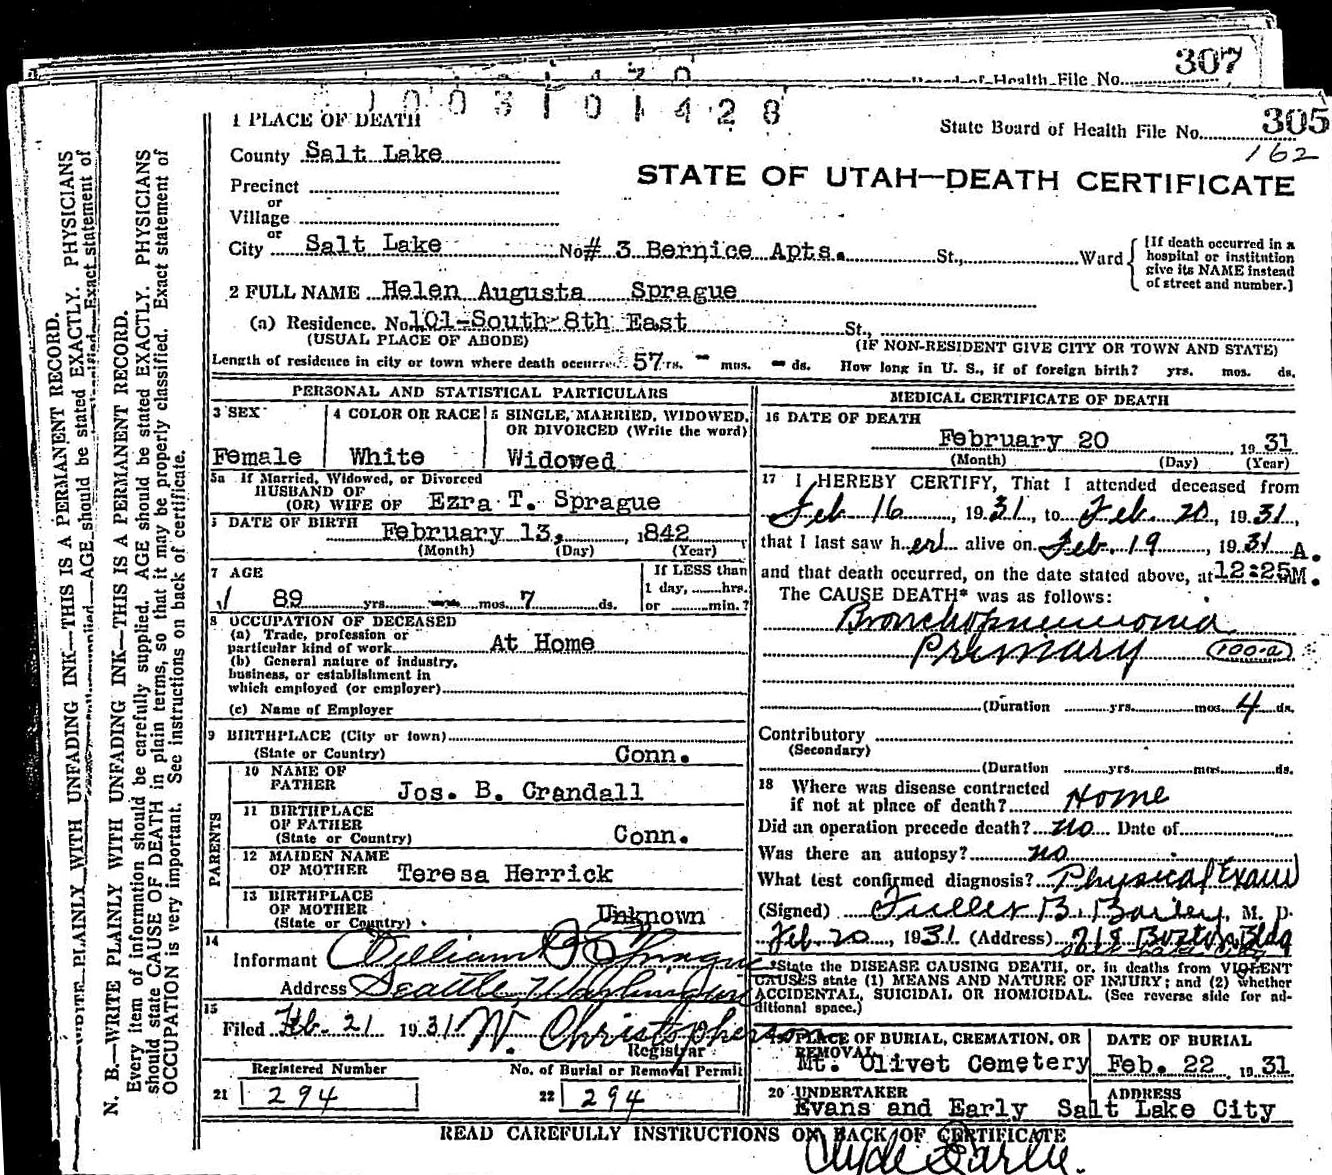 307
Board of Health File No.
1003101428
1 PLACE OF DEATH
State Board of Health File No. 305
162
County Salt Lake
STATE OF UTAH—DEATH CERTIFICATE
Precinct
or
Village
or
City Salt Lake No # 3 Bernice Apts. St., Ward
[If death occurred in a hospital or institution give its NAME instead of street and number.]
2 FULL NAME Helen Augusta Sprague
(a) Residence. No. 101-South 8th East St.,
(USUAL PLACE OF ABODE) (IF NON-RESIDENT GIVE CITY OR TOWN AND STATE)
Length of residence in city or town where death occurred 57 yrs. - mos. - ds. How long in U. S., if of foreign birth? yrs. mos. ds.
PERSONAL AND STATISTICAL PARTICULARS
3 SEX
Female
4 COLOR OR RACE
White
5 SINGLE, MARRIED, WIDOWED, OR DIVORCED (Write the word)
Widowed
5a If Married, Widowed, or Divorced
HUSBAND OF
(OR) WIFE OF Ezra T. Sprague
6 DATE OF BIRTH February 13, 1842
(Month) (Day) (Year)
7 AGE
89 yrs. - mos. 7 ds.
If LESS than
1 day, ......hrs.
or ......min.?
8 OCCUPATION OF DECEASED
(a) Trade, profession or
particular kind of work At Home
(b) General nature of industry,
business, or establishment in
which employed (or employer)
(c) Name of Employer
9 BIRTHPLACE (City or town)
(State or Country) Conn.
PARENTS
10 NAME OF
FATHER Jos. B. Crandall
11 BIRTHPLACE
OF FATHER
(State or Country) Conn.
12 MAIDEN NAME
OF MOTHER Teresa Herrick
13 BIRTHPLACE
OF MOTHER
(State or Country) Unknown
14
Informant William Sprague
Address Seattle Washington
15
Filed Feb. 21 1931 W. Christopherson
Registrar
Registered Number
21 294
No. of Burial or Removal Permit
22 294
MEDICAL CERTIFICATE OF DEATH
16 DATE OF DEATH
February 20 1931
(Month) (Day) (Year)
17 I HEREBY CERTIFY, That I attended deceased from
Feb 16, 1931, to Feb. 20, 1931,
that I last saw her alive on Feb. 19, 1931 A.
and that death occurred, on the date stated above, at 12:25 M.
The CAUSE DEATH* was as follows:
Bronchopneumonia
Primary 100-a
(Duration yrs. mos. 4 ds.
Contributory
(Secondary)
(Duration yrs. mos. ds.
18 Where was disease contracted
if not at place of death? Home
Did an operation precede death? no Date of
Was there an autopsy? no
What test confirmed diagnosis? Physical Exam
(Signed) Fuller B. Bailey, M. D.
Feb. 20, 1931 (Address) 718 Boston Bldg
Salt Lake City
*State the DISEASE CAUSING DEATH, or, in deaths from VIOLENT
CAUSES state (1) MEANS AND NATURE OF INJURY; and (2) whether
ACCIDENTAL, SUICIDAL OR HOMICIDAL. (See reverse side for ad-
ditional space.)
PLACE OF BURIAL, CREMATION, OR
REMOVAL
Mt. Olivet Cemetery
DATE OF BURIAL
Feb. 22 1931
20 UNDERTAKER
Evans and Early
ADDRESS
Salt Lake City
READ CAREFULLY INSTRUCTIONS ON BACK OF CERTIFICATE
Clyde Earle.
N. B.—WRITE PLAINLY WITH UNFADING INK—THIS IS A PERMANENT RECORD.
Every item of information should be carefully supplied. AGE should be stated EXACTLY. PHYSICIANS
should state CAUSE OF DEATH in plain terms, so that it may be properly classified. Exact statement of
OCCUPATION is very important. See instructions on back of certificate.
PLAINLY WITH UNFADING INK—THIS IS A PERMANENT RECORD.
AGE should be stated EXACTLY. PHYSICIANS
Exact statement of